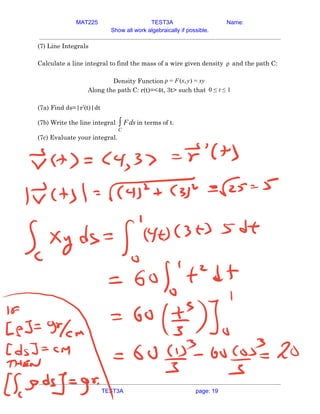 MAT225 TEST3A Name:
Show all work algebraically if possible.
(7) Line Integrals
Calculate a line integral to find the mass of a wire given density ρ and the path C:
Density Function ρ = F(x,y) = xy
Along the path C: r(t)=<4t, 3t> such that 0 ≤ t ≤ 1
(7a) Find ds=|r'(t)|dt
(7b) Write the line integral ∫_C F ds in terms of t.
(7c) Evaluate your integral.
v⃗(t) = ⟨4,3⟩ = r⃗'(t)
|v⃗(t)| = √((4)² + (3)²) = √25 = 5
∫_C xy ds = ∫₀¹ (4t)(3t) 5 dt
= 60 ∫₀¹ t² dt
= 60 (t³/3)]₀¹
= 60 (1)³/3 − 60 (0)³/3 = 20
IF
[ρ] = gr/cm
[ds] = cm
THEN
[∫_C ρ ds] = gr.
TEST3A page: 19